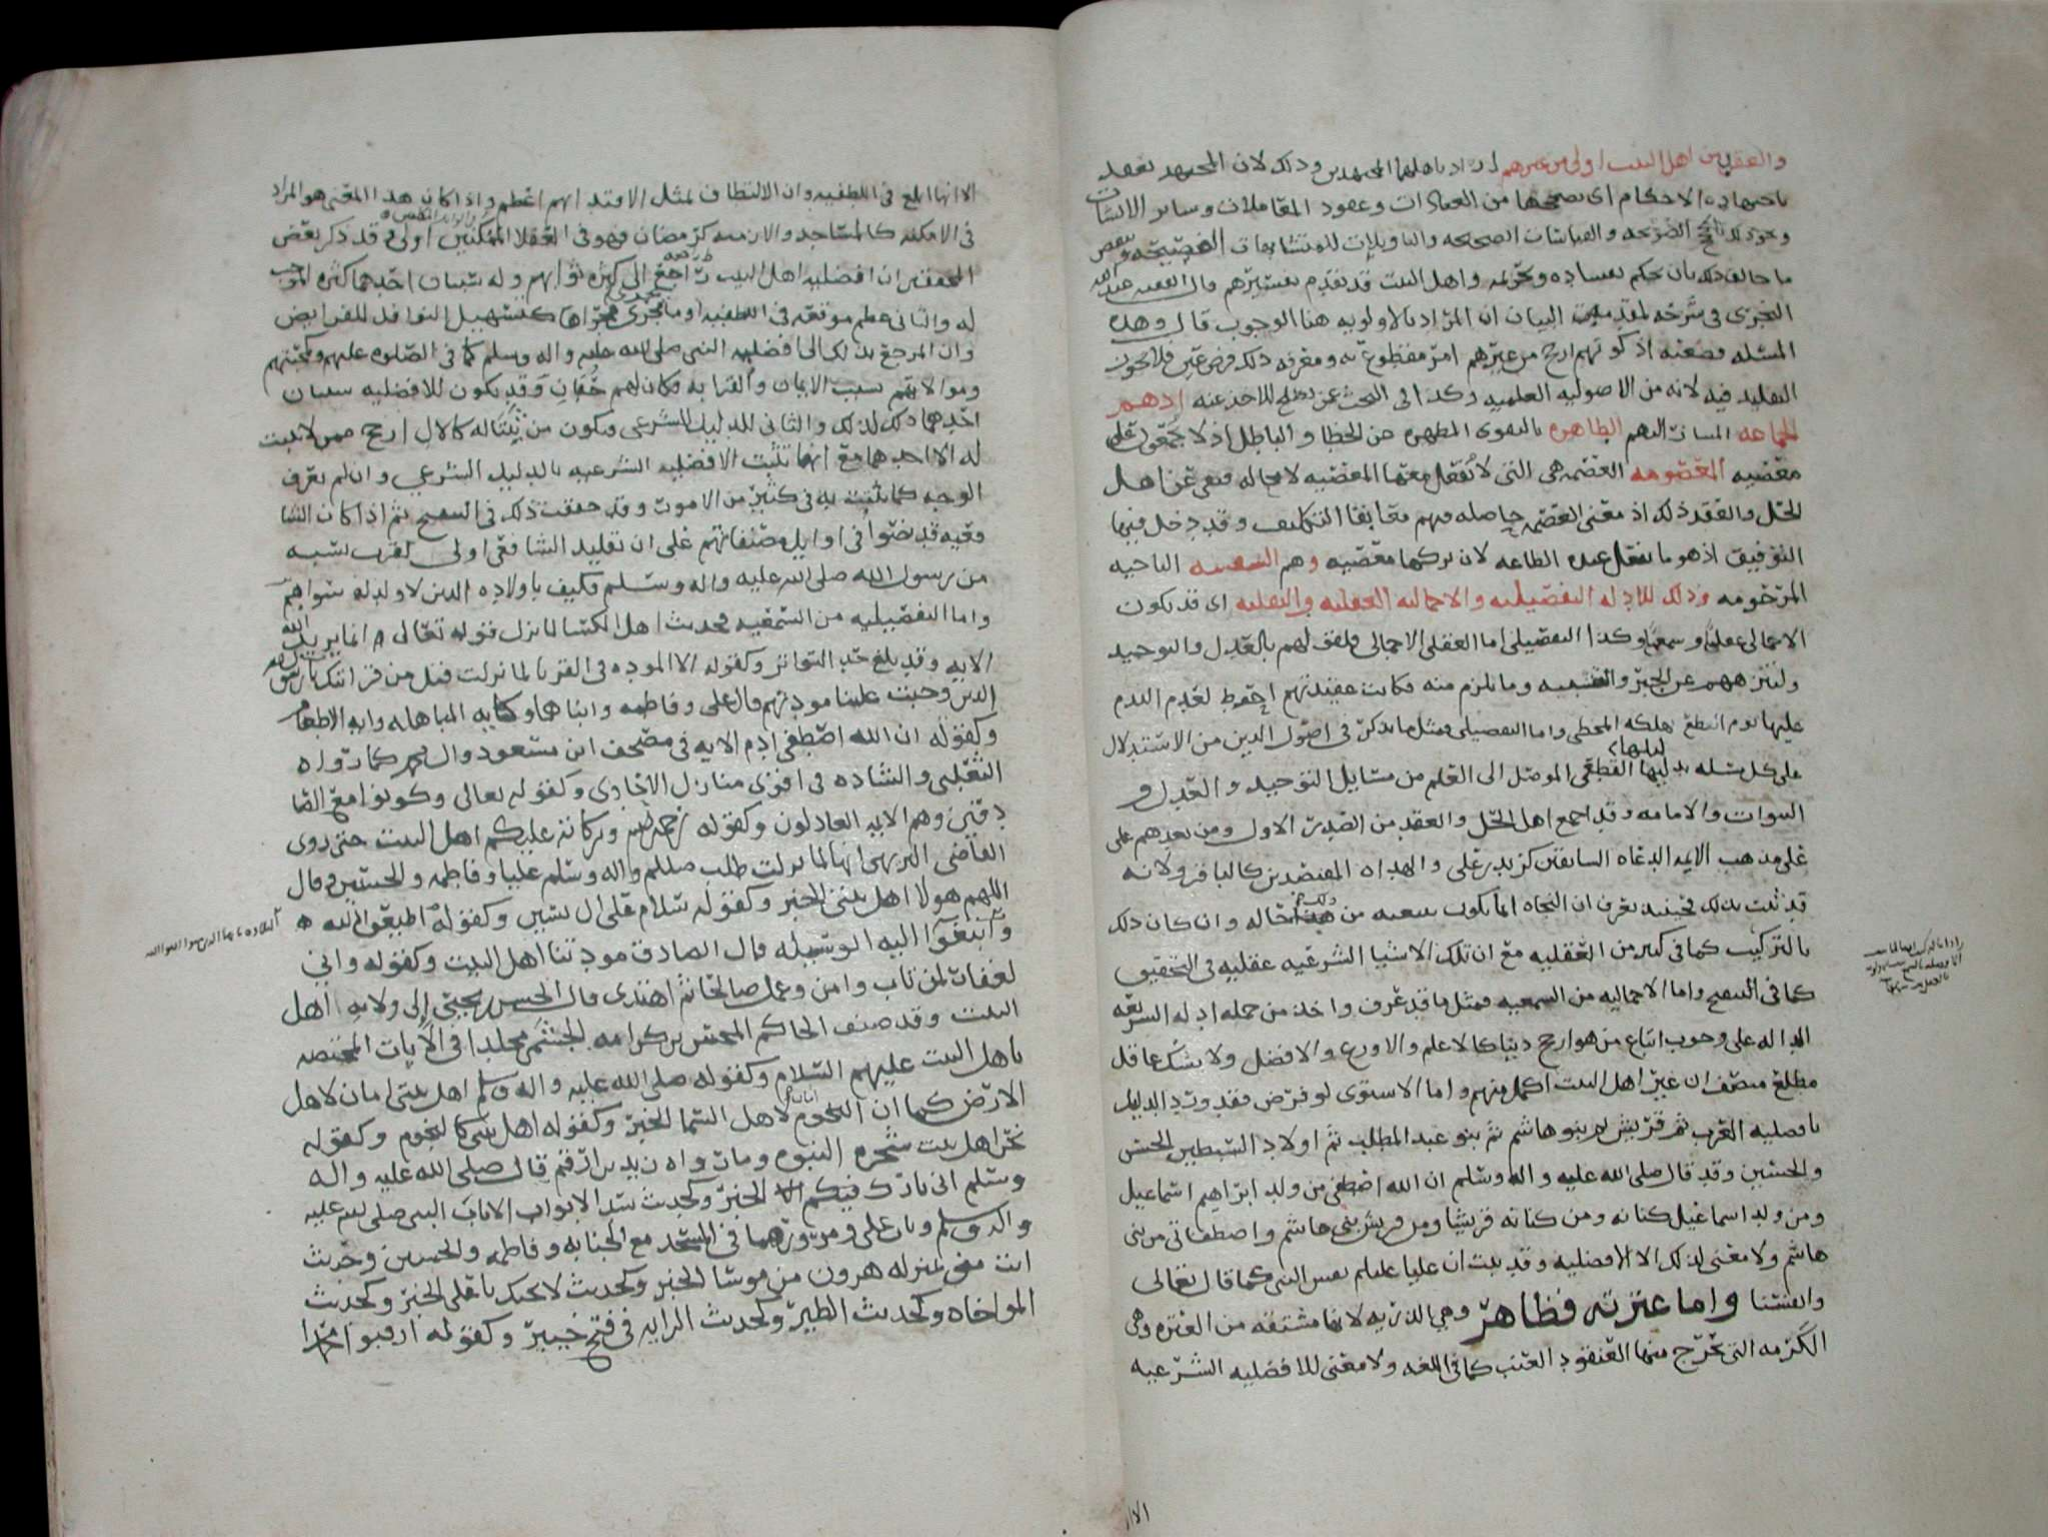 والعقد من اهل البيت اولى من غيرهم اراد باهلهما المجتهدين وذلك لان المجتهد يعقد
باجتهاده الاحكام اى يصححها من العبادات وعقود المعاملات وساير الانشات
ونحو ذلك الصريحه والقياسات الصحيحه والتاويلات للمتشابهات الفصيحه
ما خالف ذلك بان يحكم بفساده وتحريمه واهل البيت قد تقدم تفسيرهم قال الفقيه عبد الله
النجرى فى شرحه لمقدمه البيان ان المراد بالاولويه هنا الوجوب قال وهذه
المسئله قطعيه اذ كونهم ارجح من غيرهم امر مقطوع به ومعرفه ذلك فرض عين فلا يجوز
التقليد فيه لانه من الاصوليه العلميه وكذا فى البحث عن يصلح للاخذ عنه اذ هم
الجماعه المشار اليهم الطاهره بالتقوى المطهره عن الخطا والباطل اذ لا يجمعون على
معصيه المعصومه العصمه هى التى لا تفعل معها المعصيه لا محاله فنفى عن اهل
الحل والعقد ذلك اذ معنى العصمه حاصله فيهم مع بقا التكليف وقد دخل فيها
التوفيق اذ هو ما تفعل عنده الطاعه لان تركها معصيه وهم الشيعه الناجيه
المرحومه وذلك للادله التفصيليه والاجماليه العقليه والنقليه اى قد يكون
الاجمالى عقليا وسمعيا وكذا التفصيلى اما العقلى الاجمالى فلقولهم بالعدل والتوحيد
وتنزههم عن الجبر والتشبيه وما يلزم منه فكانت عقيدتهم احوط لعدم الندم
عليها يوم هلكه المخطى واما التفصيلى فمثل ما يذكر فى اصول الدين من الاستدلال
على كل مسله بدليلها القطعى الموصل الى العلم من مسايل التوحيد والعدل و
النبوات والامامه وقد اجمع اهل الحل والعقد من الصدر الاول ومن بعدهم على
على مذهب الايمه الدعاه السابقين كزيد بن على والهداه المقتصدين كالباقر ولانه
قد ثبت بذلك فحينيذ يعرف ان النجاه انما يكون بتبعيه من هذه حاله وان كان ذلك
بالتركيب كما فى كثير من العقليه مع ان تلك الاشيا الشرعيه عقليه فى التحقيق
كما فى واما الاجماليه من السمعيه فمثل ما قد عرف واخذ من جمله ادله الشريعه
الداله على وجوب اتباع من هو ارجح دينا كالاعلم والاورع والافضل ولا يشك عاقل
مطلع منصف ان غير اهل البيت اكمل منهم واما الاستوى لو فرض فقد ورد الدليل
بافضليه العرب ثم قريش ثم بنو هاشم ثم بنو عبد المطلب ثم اولاد السبطين الحسن
والحسين وقد قال صلى الله عليه واله وسلم ان الله اصطفى من ولد ابراهيم اسماعيل
ومن ولد اسماعيل كنانه ومن كنانه قريشا ومن قريش بنى هاشم واصطفانى من بنى
هاشم ولا معنى لذلك الا الافضليه وقد ثبت ان عليا عليلم نفس النبى كما قال تعالى
وانفسنا واما عترته فظاهر وهي الذريه لانها مشتقه من العتره وهى
الكرمه التى تخرج منها العنقود العنب كما فى اللغه ولا معنى للافضليه الشرعيه
الا انها ابلغ فى اللطفيه وان الالتطاف لمثل الاقتدا بهم اعظم واذا كان هذا المعنى هو المراد
فى الامكنه كالمساجد والازمنه كرمضان فهو فى العقلا المكلفين اولى وقد ذكر بعض
المحققين ان افضليه اهل البيت راجع الى كثره ثوابهم وله سببان احدهما كثره الموجب
له والثانى عظم موقعه فى اللطفيه او ما يجرى مجراها كتسهيل النوافل للفرايض
وان المرجع بذلك الى افضليه النبى صلى الله عليه واله وسلم كما فى الصلوه عليهم ومحبتهم
وموالاتهم بسبب الايمان والقرابه فكان لهم حقان وقد يكون للافضليه سببان
احدهما ذلك لذلك والثانى للدليل الشرعى فيكون من ثبتا له كالال ارجح ممن لا يثبت
له الا احدهما مع انها تثبت الافضليه الشرعيه بالدليل الشرعي وان لم نعرف
الوجه كما ثبت به فى كثير من الامور وقد حققت ذلك فى ثم اذا كان الشا
فعيه قد نصوا فى اوايل مصنفاتهم على ان تقليد الشافعى اولى لقرب نسبه
من رسول الله صلى الله عليه واله وسلم فكيف باولاده الذين لا ولد له سواهم
واما التفصيليه من السمعيه فحديث اهل الكسا لما نزل قوله تعالى انما يريد الله
الايه وقد بلغ حد التواتر وكقوله الا الموده فى القربا لما نزلت قيل من قرابتك يا رسول الله
الذين وجبت علينا مودتهم قال على وفاطمه وابناها وكايه المباهله وايه الاطعام
وكقوله ان الله اصطفى ادم الايه فى مصحف ابن مسعود وال محمد كما رواه
الثعلبى والشاده فى اقوى منازل الاحادى وكقوله تعالى وكونوا مع الصا
دقين وهم الايمه العادلون وكقوله رحمه الله وبركاته عليكم اهل البيت حتى روى
القاضى انها لما نزلت طلب صللم واله وسلم عليا وفاطمه والحسنين وقال
اللهم هولا اهل بيتى الخبر وكقوله سلام على ال يسين وكقوله اطيعوا الله
وابتغوا اليه الوسيله قال الصادق مودتنا اهل البيت وكقوله وانى
لغفار لمن تاب وامن وعمل صالحا ثم اهتدى قال الحسن يحيى الى ولايه اهل
البيت وقد صنف الحاكم المحسن بن كرامه الجشمى مجلدا فى الايات المختصه
باهل البيت عليهم السلام وكقوله صلى الله عليه واله وسلم اهل بيتى امان لاهل
الارض كما ان النجوم امان لاهل السما الخبر وكقوله اهل بيتى كالنجوم وكقوله
نحن اهل بيت شجره النبوه وما رواه زيد بن ارقم قال صلى الله عليه واله
وسلم انى تارك فيكم الخبر وكحديث سد الابواب الا باب النبى صلى الله عليه
واله وسلم وباب على ومرورهما فى المسجد مع الجنابه وفاطمه والحسنين وحديث
انت منى بمنزله هرون من موسا الخبر وكحديث لا يحبك يا على الخبر وكحديث
المواخاه وكحديث الطير وكحديث الرايه فى فتح خيبر وكقوله ارقبوا محمدا